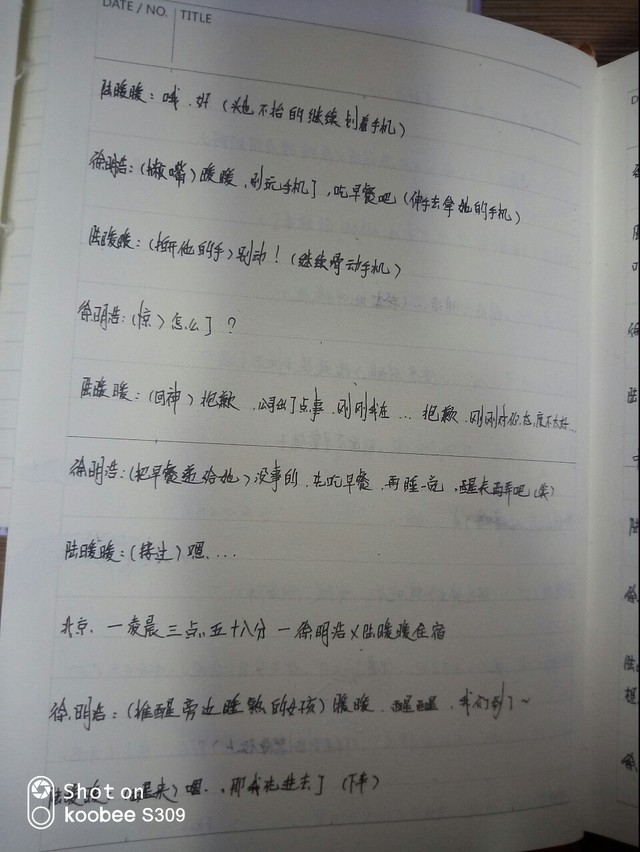 DATE / NO. TITLE
陆暖暖：哦，好（头也不抬的继续划着手机）
徐明浩：（撇嘴）暖暖，别玩手机了，吃早餐吧（伸手去拿她的手机）
陆暖暖：（拍开他的手）别动！（继续滑动手机）
徐明浩：（惊）怎么了？
陆暖暖：（回神）抱歉，公司出了点事，刚刚我在...抱歉，刚刚对你态度不太好...
徐明浩：（把早餐递给她）没事的，先吃早餐，再睡一觉，醒来再弄吧（笑）
陆暖暖：（接过）嗯....
北京，一凌晨三点五十八分一徐明浩×陆暖暖住宿
徐明浩：（推醒旁边睡熟的女孩）暖暖，醒醒，我们到了~
陆暖暖：醒来）嗯..，那我先进去了（下车）
Shot on
koobee S309